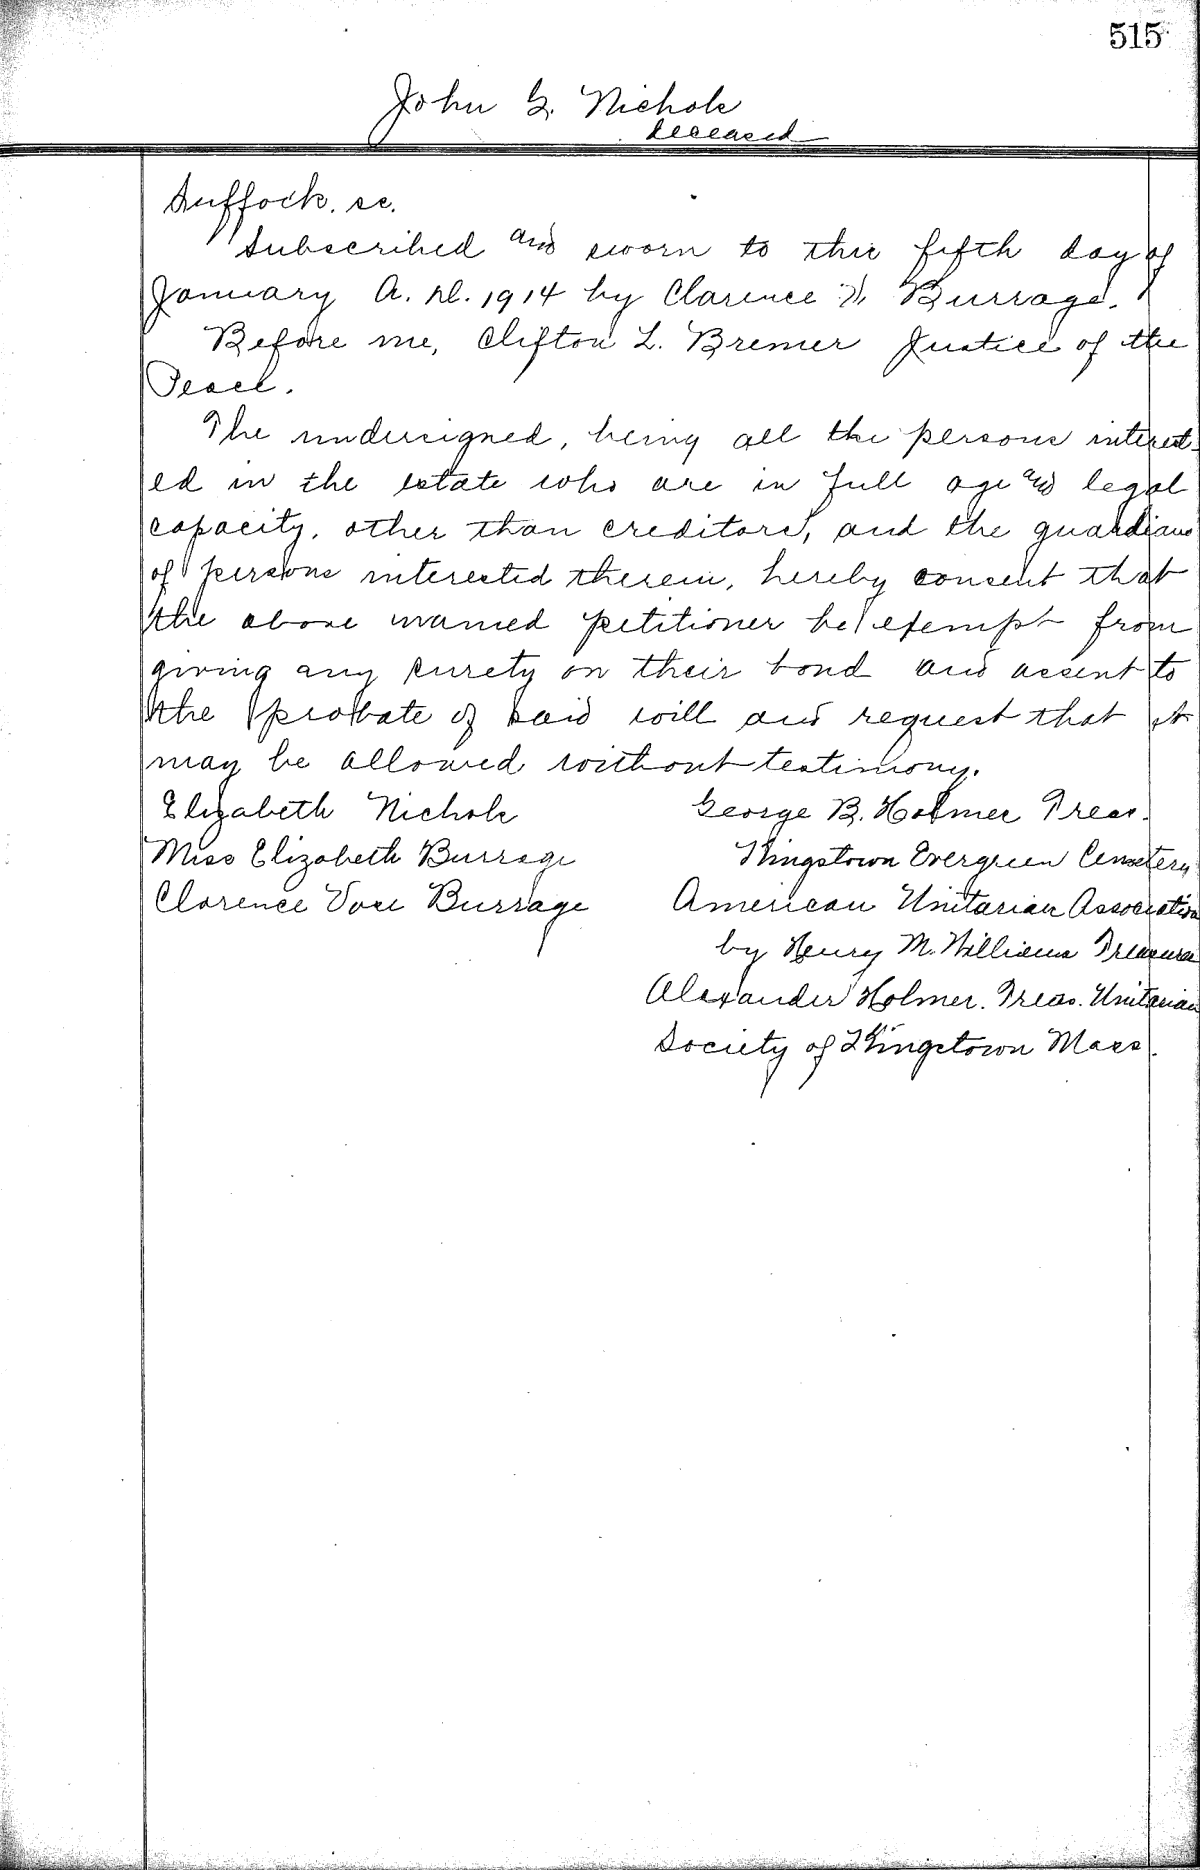 515
John G. Nichols
deceased
Suffock. ss.
Subscribed and sworn to this fifth day of
January A. D. 1914 by Clarence H. Burrage.
Before me, Clifton L. Bremer Justice of the
Peace.
The undersigned, being all the persons interest-
ed in the estate who are in full age and legal
capacity, other than creditors, and the guardians
of persons interested therein, hereby consent that
the above named petitioner be exempt from
giving any surety on their bond and assent to
the probate of said will and request that it
may be allowed without testimony.
Elizabeth Nichols George B. Holmes Treas.
Miss Elizabeth Burrage Kingstown Evergreen Cemetery
Clarence Vose Burrage American Unitarian Association
by Henry M. Williams Treasurer
Alexander Holmes. Treas. Unitarian
Society of Kingstown Mass.